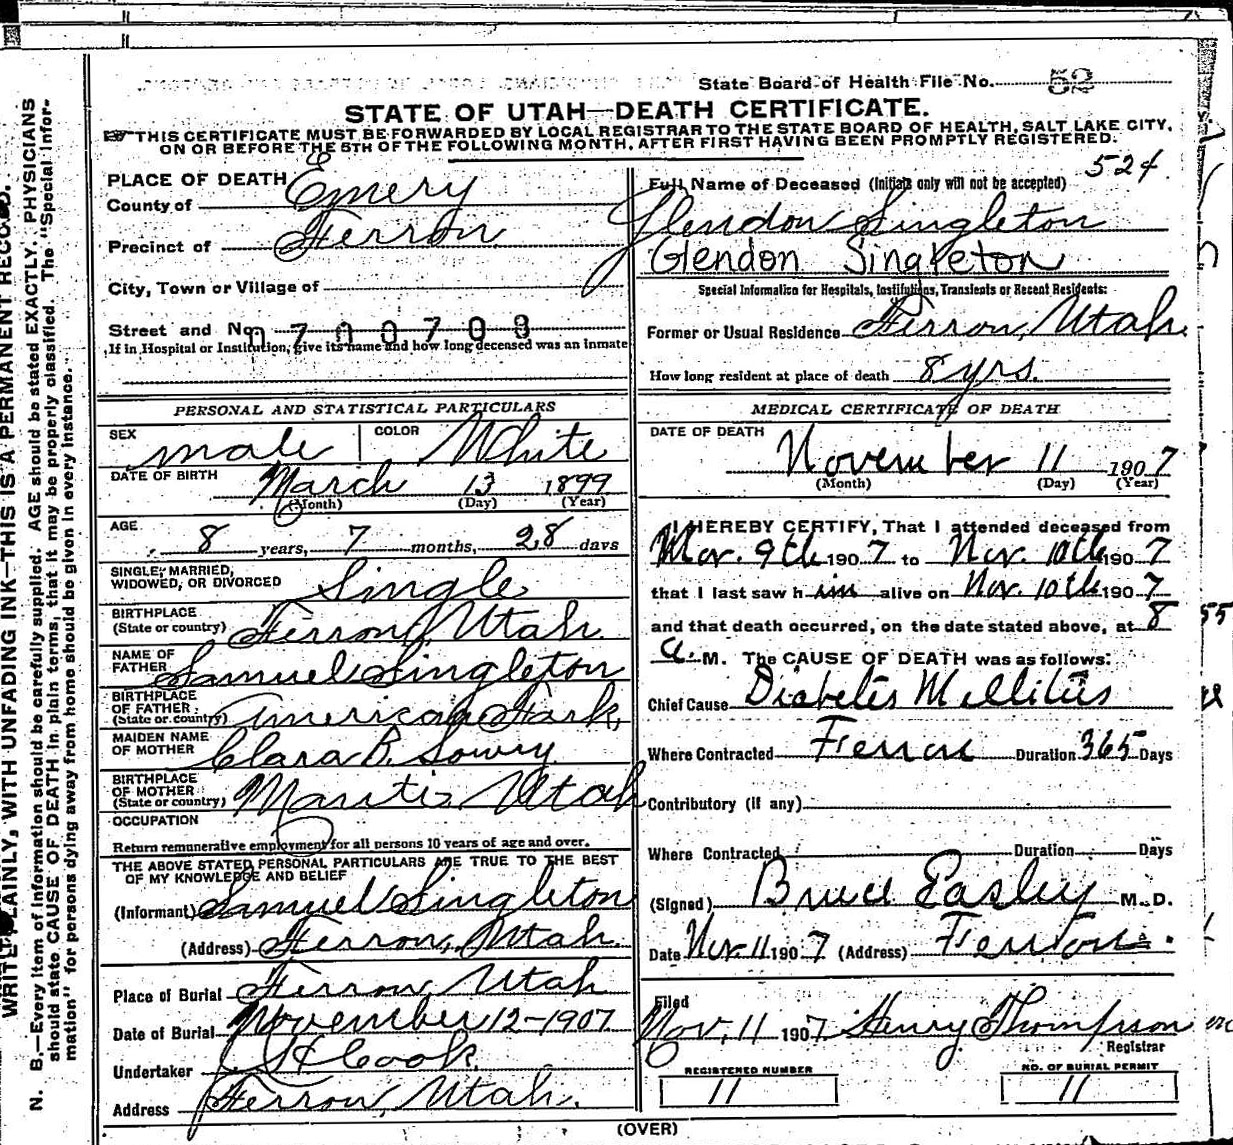 State Board of Health File No. 52
STATE OF UTAH—DEATH CERTIFICATE.
THIS CERTIFICATE MUST BE FORWARDED BY LOCAL REGISTRAR TO THE STATE BOARD OF HEALTH, SALT LAKE CITY,
ON OR BEFORE THE 5TH OF THE FOLLOWING MONTH, AFTER FIRST HAVING BEEN PROMPTLY REGISTERED.
WRITE PLAINLY, WITH UNFADING INK—THIS IS A PERMANENT RECORD.
N. B.—Every item of information should be carefully supplied. AGE should be stated EXACTLY. PHYSICIANS
should state CAUSE OF DEATH in plain terms, that it may be properly classified. The "Special Infor-
mation" for persons dying away from home should be given in every instance.
PLACE OF DEATH
County of Emery
Precinct of Ferron
City, Town or Village of
Street and No. 700708
If in Hospital or Institution, give its name and how long deceased was an inmate
PERSONAL AND STATISTICAL PARTICULARS
SEX male COLOR White
DATE OF BIRTH March 13 1899
(Month) (Day) (Year)
AGE 8 years, 7 months, 28 days
SINGLE, MARRIED,
WIDOWED, OR DIVORCED Single
BIRTHPLACE
(State or country) Ferron, Utah.
NAME OF
FATHER Samuel Singleton
BIRTHPLACE
OF FATHER
(State or country) American Fork,
MAIDEN NAME
OF MOTHER Clara B. Lowry
BIRTHPLACE
OF MOTHER
(State or country) Manti Utah
OCCUPATION
Return remunerative employment for all persons 10 years of age and over.
THE ABOVE STATED PERSONAL PARTICULARS ARE TRUE TO THE BEST
OF MY KNOWLEDGE AND BELIEF
(Informant) Samuel Singleton
(Address) Ferron, Utah.
Place of Burial Ferron, Utah
Date of Burial November 12-1907
Undertaker Cook
Address Ferron, Utah.
524
Full Name of Deceased (Initials only will not be accepted)
Glendon Singleton
Glendon Singleton
Special Information for Hospitals, Institutions, Transients or Recent Residents:
Former or Usual Residence Ferron, Utah.
How long resident at place of death 8 yrs.
MEDICAL CERTIFICATE OF DEATH
DATE OF DEATH
November 11 1907
(Month) (Day) (Year)
I HEREBY CERTIFY, That I attended deceased from
Nov. 9th 1907 to Nov. 10th 1907
that I last saw him alive on Nov. 10th 1907
and that death occurred, on the date stated above, at 8
a. M. The CAUSE OF DEATH was as follows:
Chief Cause Diabetis Mellitus
Where Contracted Ferron Duration 365 Days
Contributory (if any)
Where Contracted Duration Days
(Signed) Bruce Easley M. D.
Date Nov. 11 1907 (Address) Ferron
Filed
Nov. 11 1907 Henry Thompson
Registrar
REGISTERED NUMBER
11
NO. OF BURIAL PERMIT
11
(OVER)